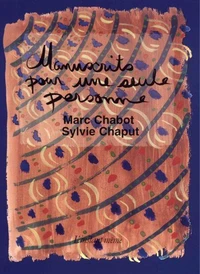 Manuscrits
pour une seule
personne
Marc Chabot
Sylvie Chaput